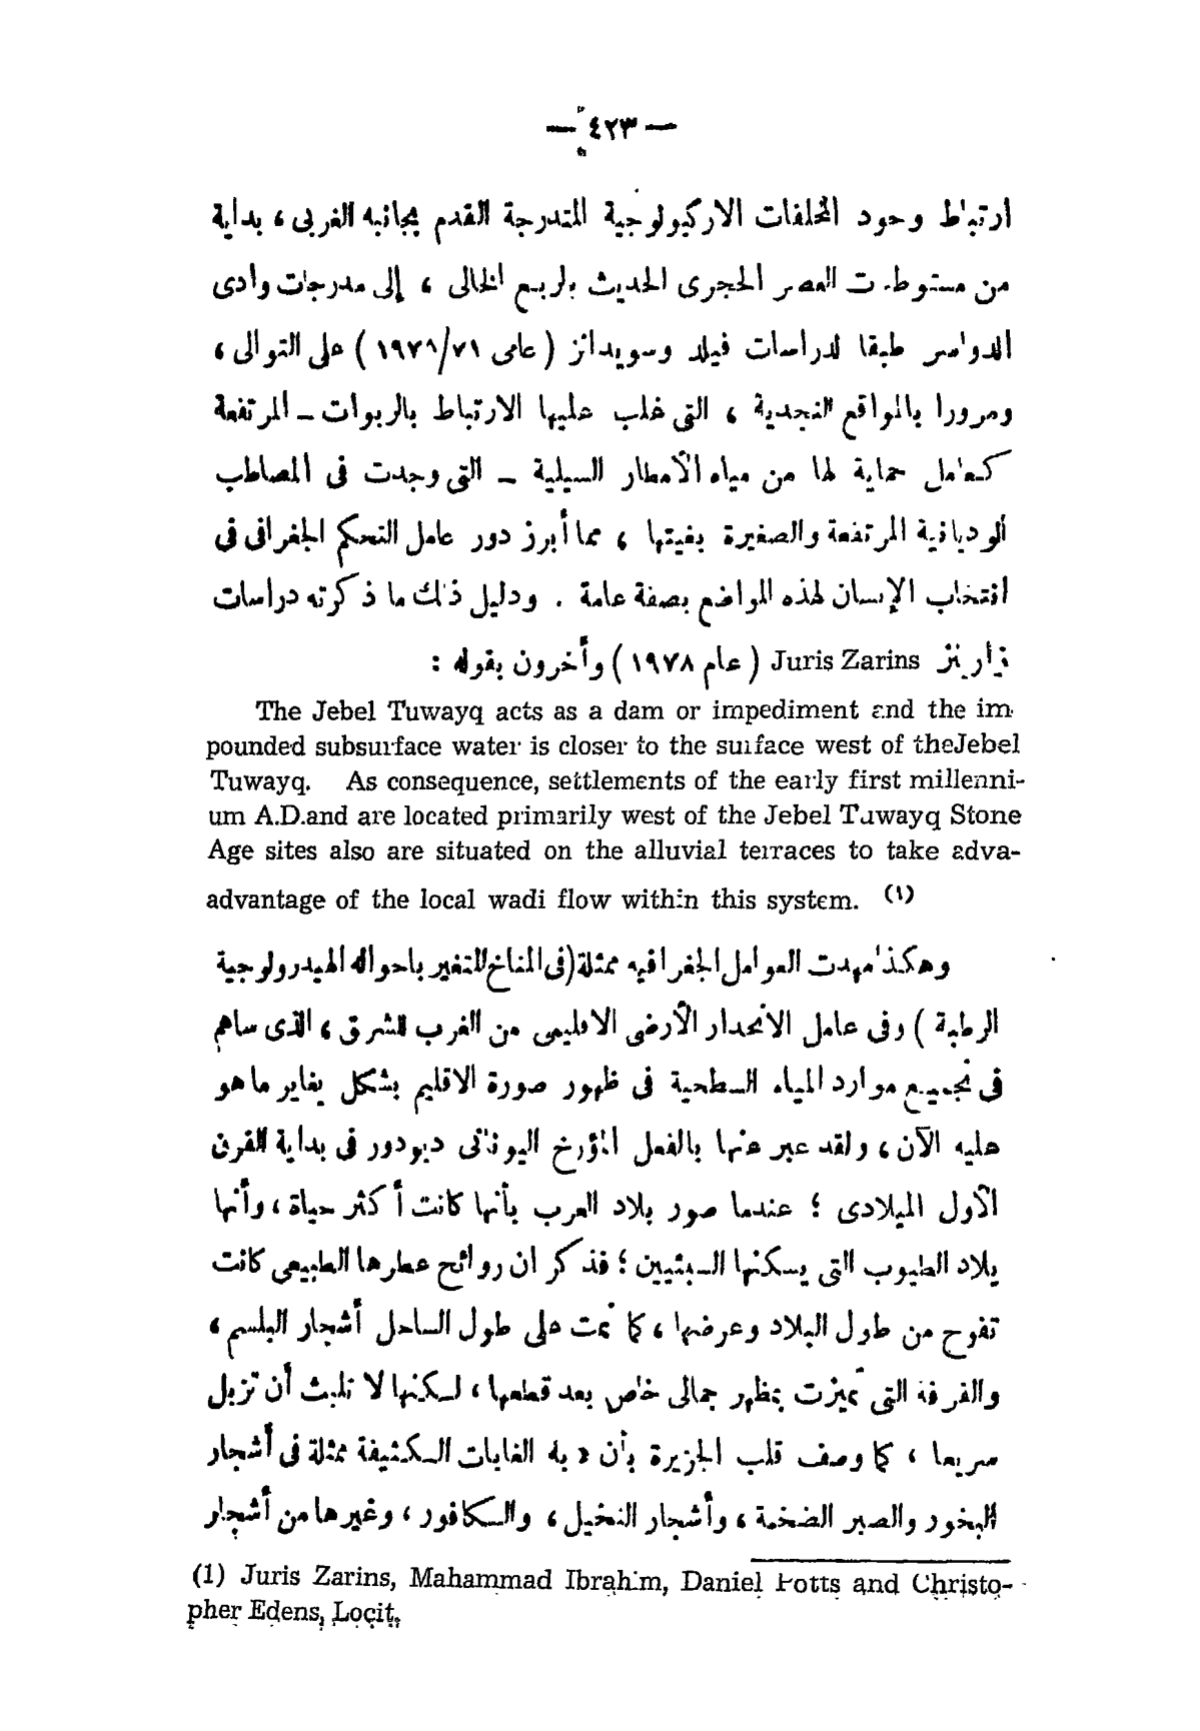 — ٤٢٣ —
ارتباط وجود المخلفات الاركيولوجية المتدرجة القدم بجانبه الغربى ، بداية
من مستوطنات العصر الحجرى الحديث بالربع الخالى ، إلى مدرجات وادى
الدواسر طبقا لدراسات فيلد وسويدانز ( عامى ١٩٧٨/٧١ ) على التوالى ،
ومرورا بالمواقع النجدية ، التى غلب عليها الارتباط بالربوات ــ المرتفعة
كعامل حماية لها من مياه الأمطار السيلية ــ التى وجدت فى المصاطب
الوديانية المرتفعة والصغيرة بغيتها ، مما أبرز دور عامل التحكم الجغرافى فى
انتخاب الإنسان لهذه المواضع بصفة عامة . ودليل ذلك ما ذكرته دراسات
زارينز Juris Zarins ( عام ١٩٧٨ ) وأخرون بقوله :
The Jebel Tuwayq acts as a dam or impediment and the im-
pounded subsurface water is closer to the surface west of theJebel
Tuwayq. As consequence, settlements of the early first millenni-
um A.D.and are located primarily west of the Jebel Tuwayq Stone
Age sites also are situated on the alluvial terraces to take adva-
advantage of the local wadi flow within this system. (١)
وهكذا مهدت العوامل الجغرافيه ممثلة (فى المناخ المتغير باحواله الهيدرولوجية
الرطبة ) وفى عامل الانحدار الأرضى الاقليمى من الغرب للشرق ، الذى ساهم
فى تجميع موارد المياه السطحية فى ظهور صورة الاقليم بشكل يغاير ما هو
عليه الآن ، ولقد عبر عنها بالفعل المؤرخ اليونانى ديودور فى بداية القرن
الأول الميلادى ؛ عندما صور بلاد العرب بأنها كانت أكثر حياة ، وأنها
بلاد الطيوب التى يسكنها السبئيين ؛ فذكر ان روائح عطرها الطبيعى كانت
تفوح من طول البلاد وعرضها ، كما نمت على طول الساحل أشجار البلسم ،
والقرفة التى تميزت بمظهر جمالى خاص بعد قطعها ، لكنها لا تلبث أن تزبل
سريعا ، كما وصف قلب الجزيرة بأن « به الغابات الكثيفة ممثلة فى أشجار
البخور والصبر الضخمة ، وأشجار النخيل ، والكافور ، وغيرها من أشجار
(1) Juris Zarins, Mahammad Ibrahim, Daniel Potts and Christo-
pher Edens, Locit,